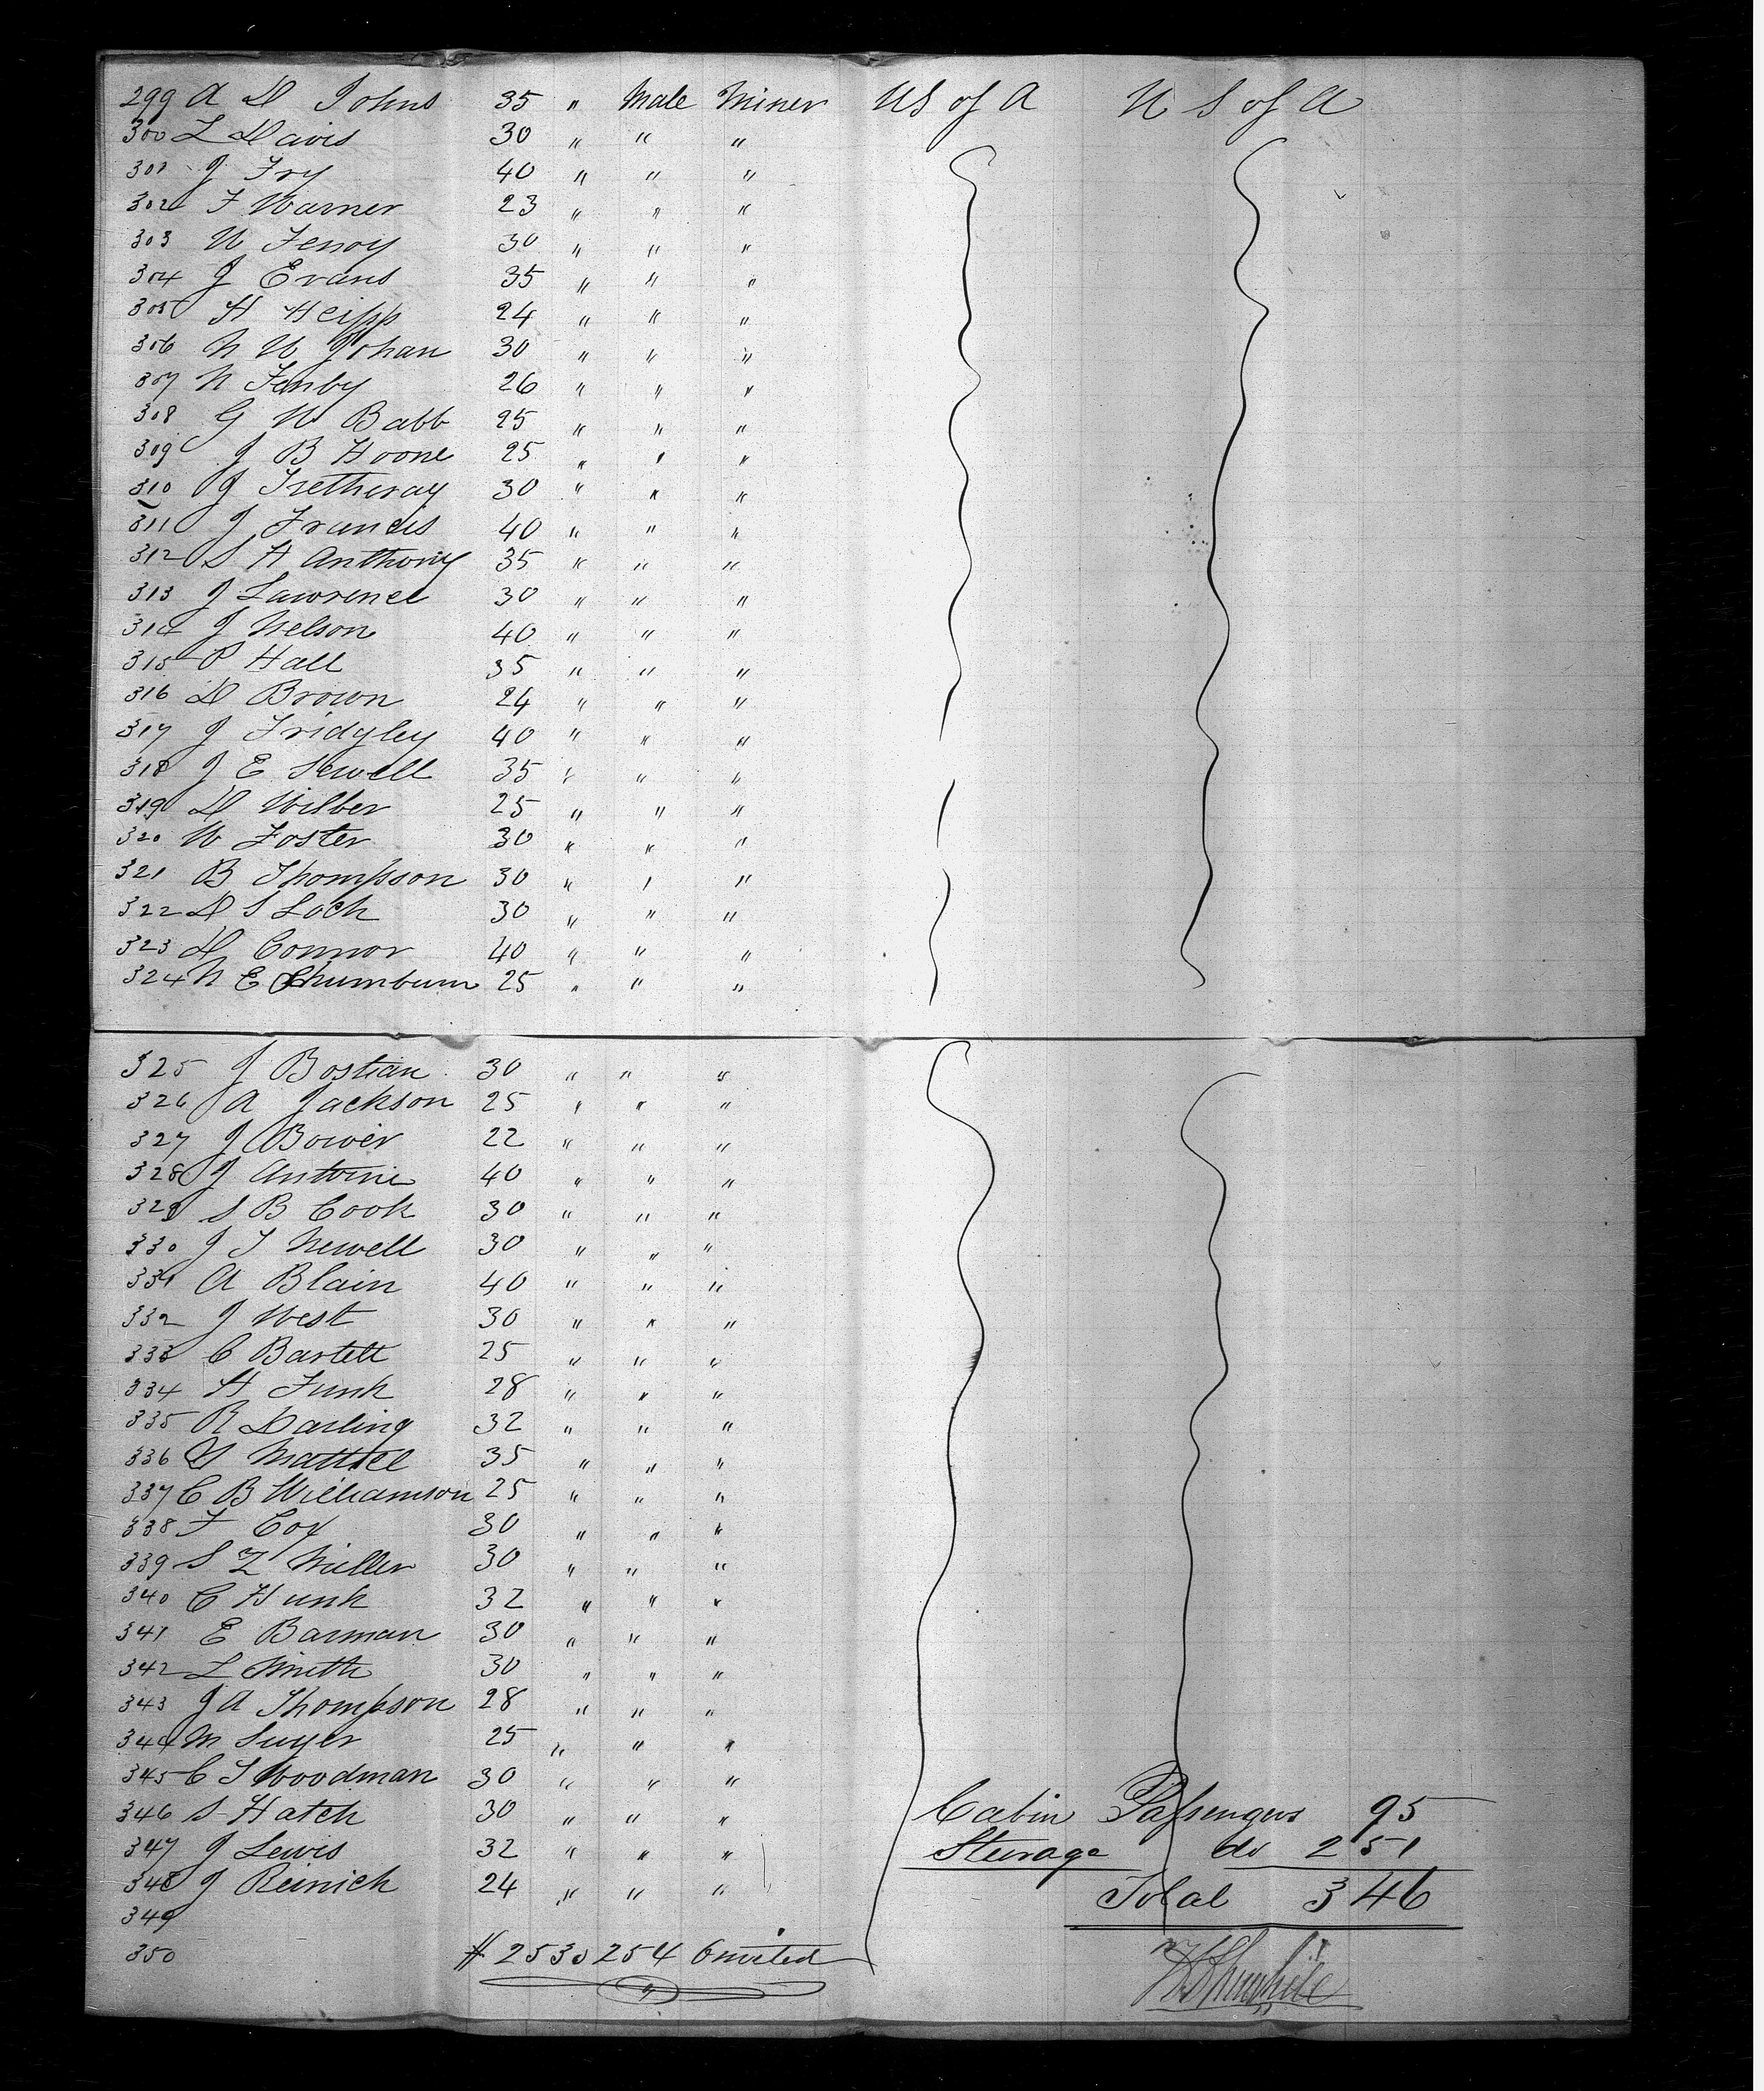 299 A D Johns 35 " Male Miner US of A U S of A
300 L Davis 30 " " "
301 J Fry 40 " " "
302 F Warner 23 " " "
303 W Fenoy 30 " " "
304 J Evans 35 " " "
305 H Heipp 24 " " "
306 N W Johan 30 " " "
307 N Fenby 26 " " "
308 G W Babb 25 " " "
309 J B Hoone 25 " " "
310 J Tretheray 30 " " "
311 J Francis 40 " " "
312 S H Anthony 35 " " "
313 J Lawrence 30 " " "
314 J Nelson 40 " " "
315 P Hall 35 " " "
316 D Brown 24 " " "
317 J Fridgley 40 " " "
318 J E Sewell 35 " " "
319 D Wilber 25 " " "
320 W Foster 30 " " "
321 B Thompson 30 " " "
322 D S Loch 30 " " "
323 D Connor 40 " " "
324 N E 25 " " "
325 J Bostian 30 " " "
326 A Jackson 25 " " "
327 J Bower 22 " " "
328 J Antoine 40 " " "
329 S B Cook 30 " " "
330 J T Newell 30 " " "
331 A Blain 40 " " "
332 J West 30 " " "
333 C Bartelt 25 " " "
334 H Funk 28 " " "
335 R Darling 32 " " "
336 35 " " "
337 C B Williamson 25 " " "
338 F Cox 30 " " "
339 S Z Miller 30 " " "
340 C Hunk 32 " " "
341 E Barman 30 " " "
342 L Smith 30 " " "
343 J A Thompson 28 " " "
344 M Suyer 25 " " "
345 C T Woodman 30 " " "
346 S Hatch 30 " " " Cabin Passengers 95
347 J Lewis 32 " " " Sterage do 251
348 J Reinich 24 " " " Total 346
349
350 # 253 254 Omited